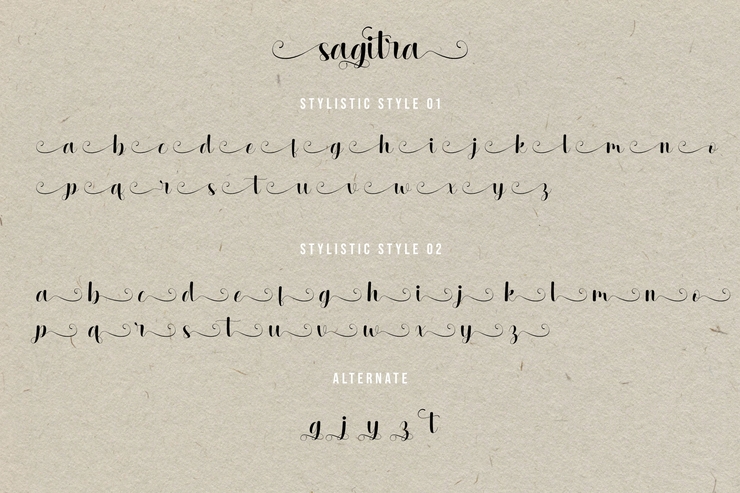 sagitra
STYLISTIC STYLE 01
a b c d e f g h i j k l m n o
p q r s t u v w x y z
STYLISTIC STYLE 02
a b c d e f g h i j k l m n o
p q r s t u v w x y z
ALTERNATE
g j y z t